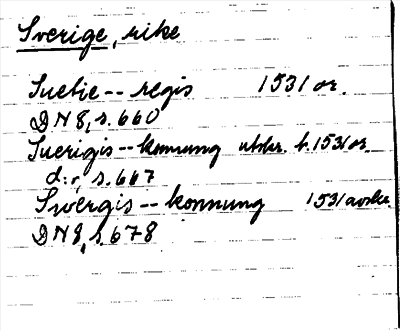 Sverige, rike
Suetie -- regis 1531 or.
DN 8, s. 660
Suerigis -- konnung utskr. b. 1531 or.
d:o, s. 667
Swergis -- konnung 1531 avskr.
DN 8, s. 678